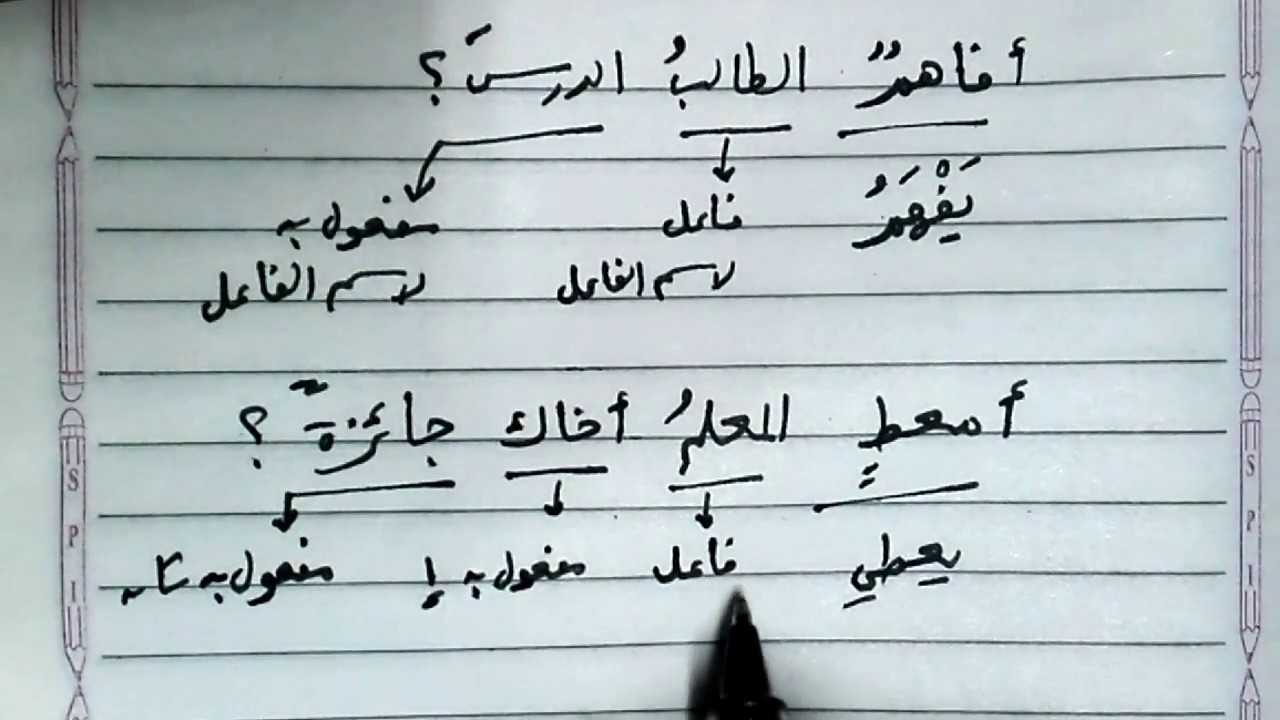 أ فاهمٌ الطالبُ الدرسَ ؟
يَفْهَمُ فاعل مفعول به
لاسم الفاعل لاسم الفاعل
أ معطٍ المعلمُ أخاك جائزةً ؟
يعطي فاعل مفعول به إ مفعول به ثان
S P I
S P I